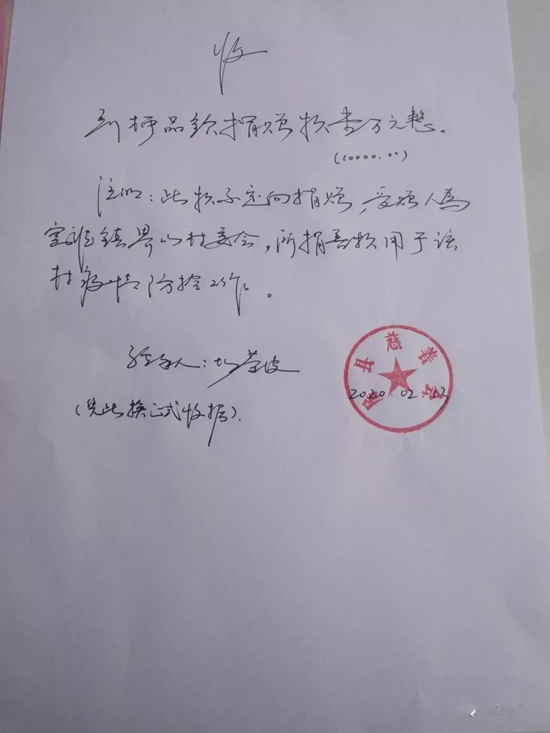 收
到 捐赠款壹万元整。
(10000.00)
注明：此款系定向捐赠，受赠人为
镇界山村委会，所捐善款用于该
村疫情防控工作。
经办人：
(凭此换正式收据).
县慈善会
2020.02.